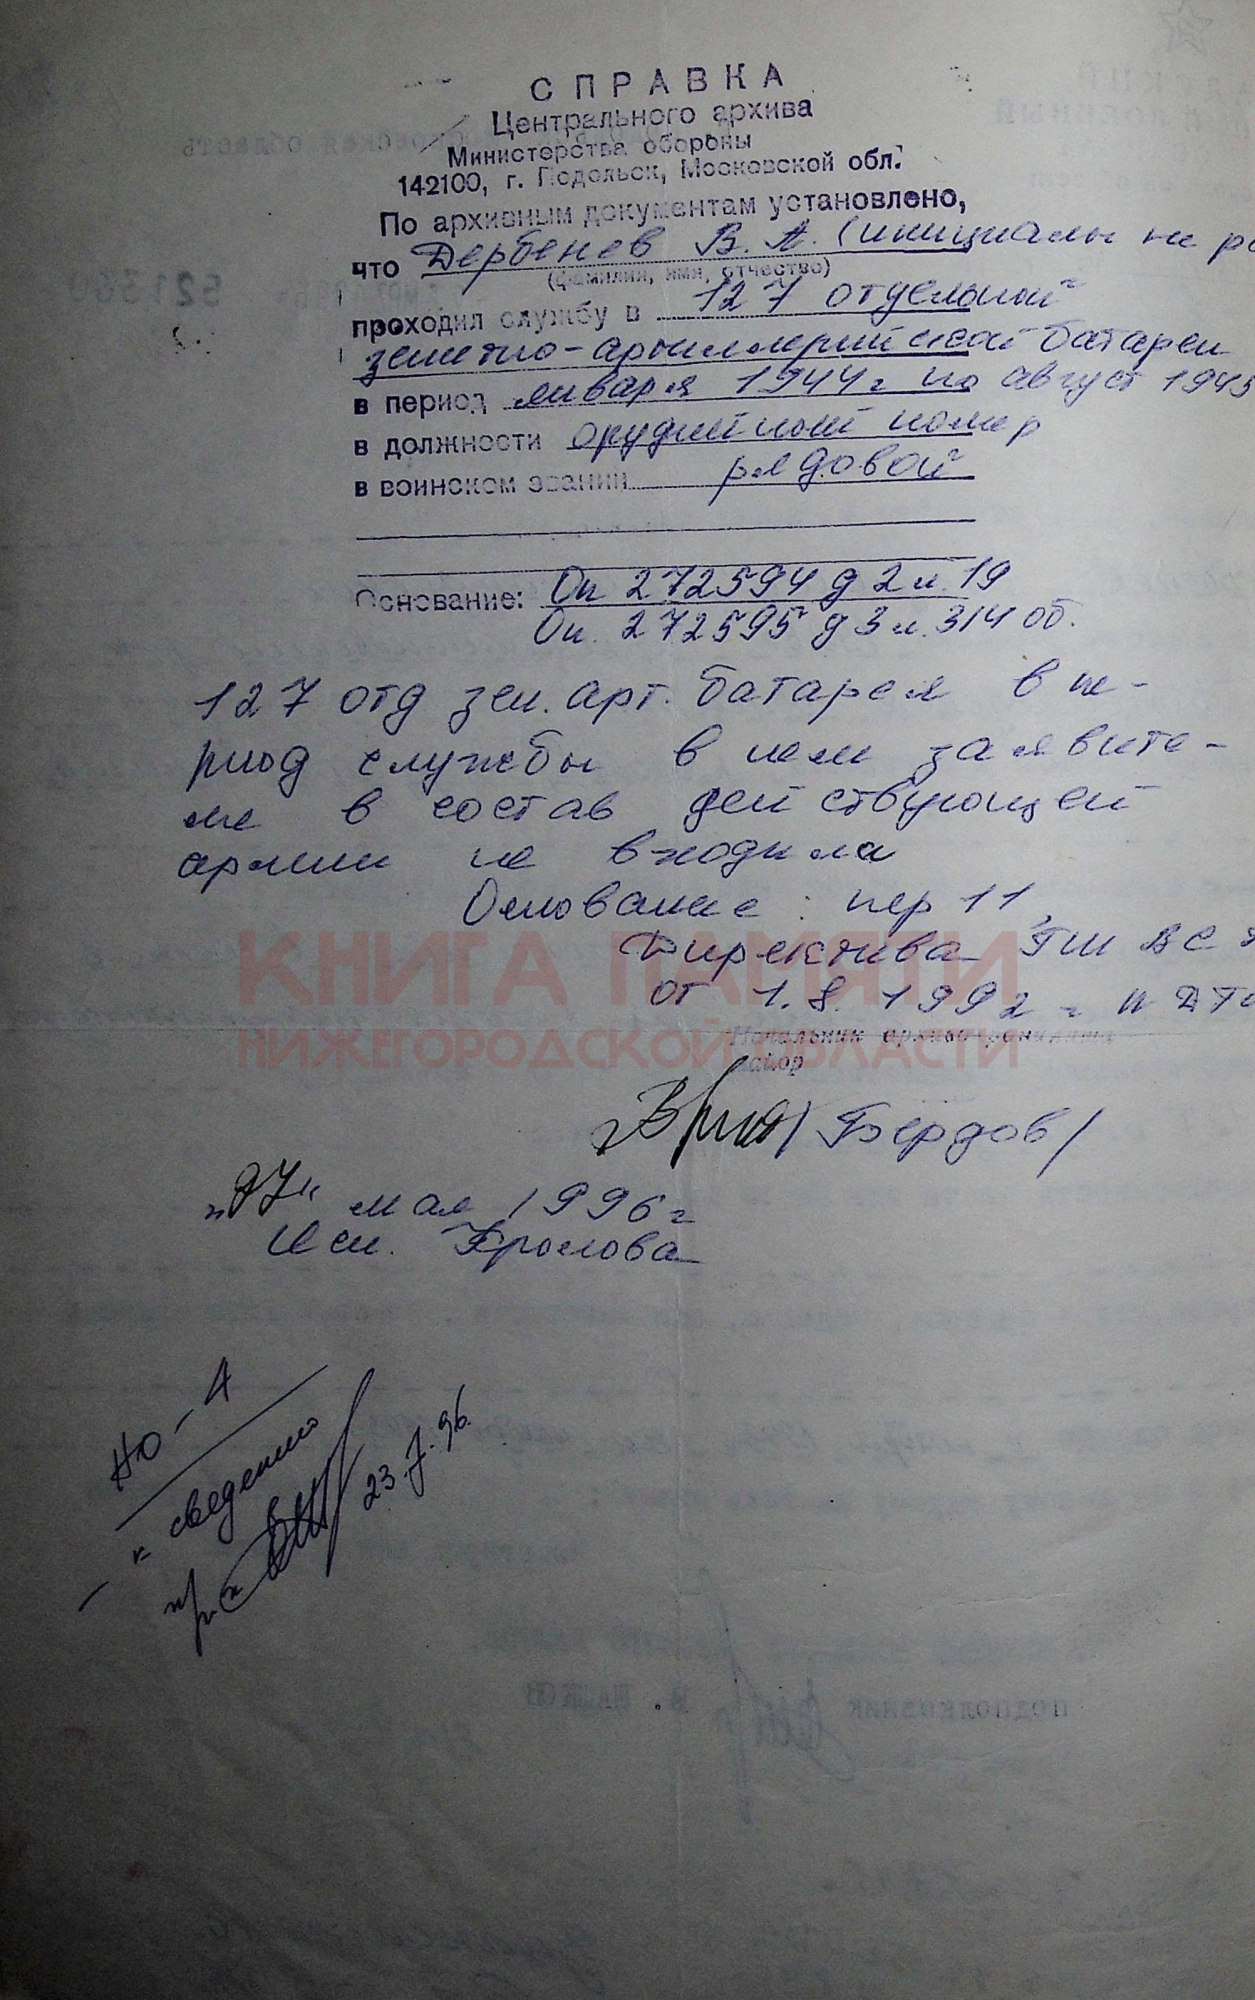 СПРАВКА
Центрального архива
Министерства обороны
142100, г. Подольск, Московской обл.
По архивным документам установлено,
что Дербенев В. А. (инициалы не
(фамилия, имя, отчество)
проходил службу в 127 отдельной
зенитно-артиллерийской батареи
в период января 1944 г по август 1945
в должности орудийный номер
в воинском звании рядовой
Основание: Оп 272594 д 2 л. 19
Оп. 272595 д 3 л. 314 об.
127 отд зен. арт. батарея в пе-
риод службы в ней заявите-
ля в состав действующей
армии не входила
Основание: пер 11,
Директива ГШ ВС
от 1.8.1992 г
КНИГА ПАМЯТИ
НИЖЕГОРОДСКОЙ ОБЛАСТИ
Начальник архивохранилища
майор
/Бердов/
"27" мая 1996 г
Исп. Фролова
НО-А
к сведению
23.7.96.
521300
подполковник